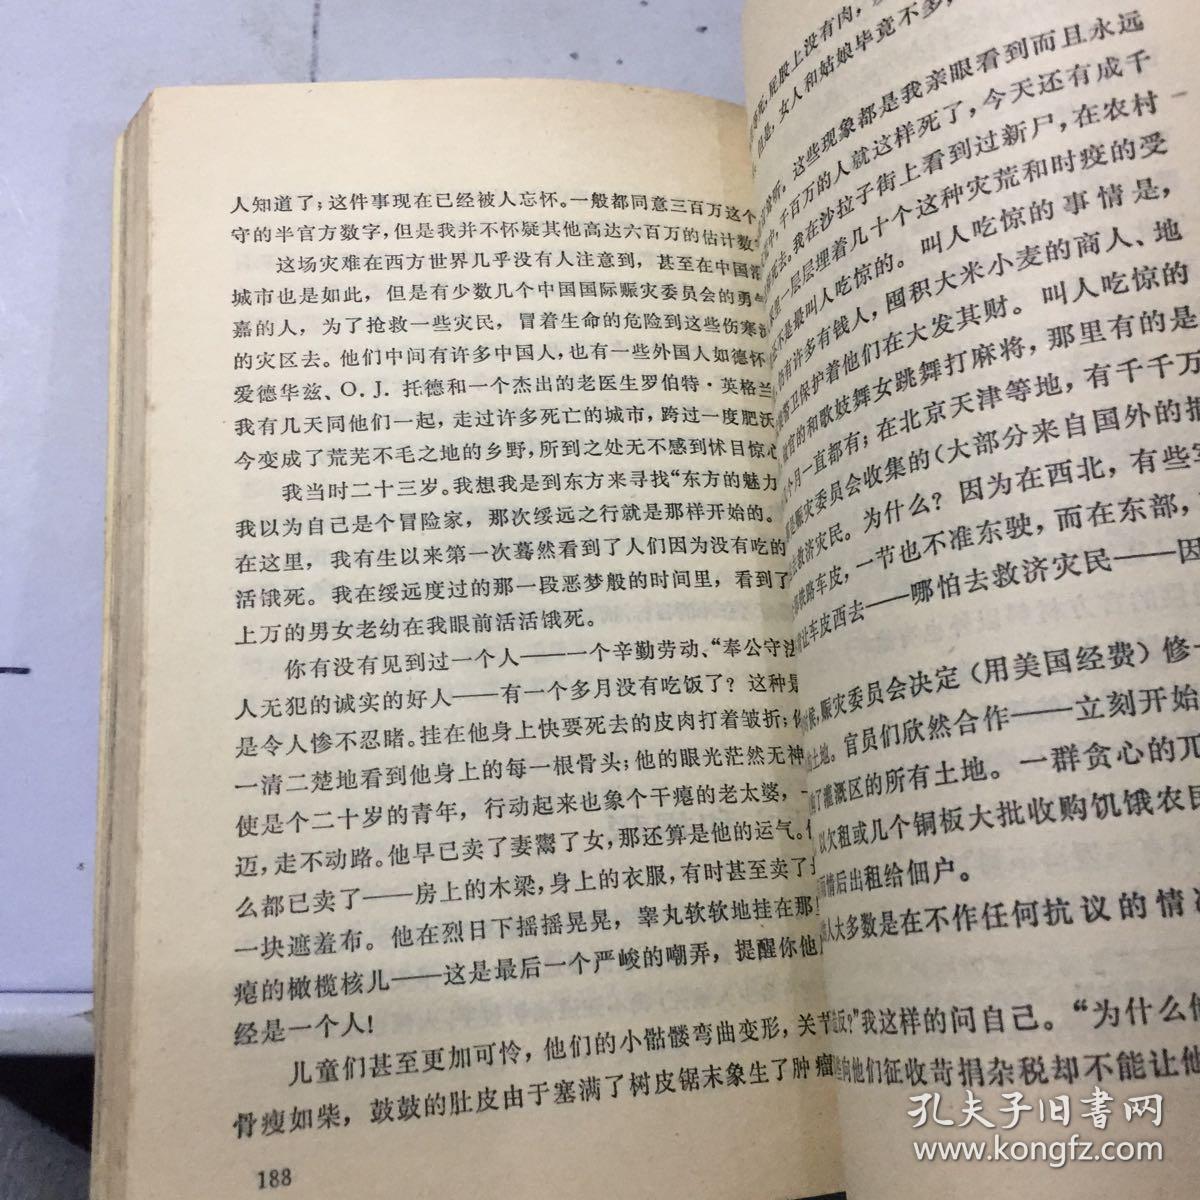 人知道了；这件事现在已经被人忘怀。一般都同意三百万这个
守的半官方数字，但是我并不怀疑其他高达六百万的估计数
这场灾难在西方世界几乎没有人注意到，甚至在中国沿
城市也是如此，但是有少数几个中国国际赈灾委员会的勇气
嘉的人，为了抢救一些灾民，冒着生命的危险到这些伤寒
的灾区去。他们中间有许多中国人，也有一些外国人如德怀
爱德华兹、O.J.托德和一个杰出的老医生罗伯特·英格兰
我有几天同他们一起，走过许多死亡的城市，跨过一度肥沃
今变成了荒芜不毛之地的乡野，所到之处无不感到怵目惊心
我当时二十三岁。我想我是到东方来寻找“东方的魅力
我以为自己是个冒险家，那次绥远之行就是那样开始的。
在这里，我有生以来第一次蓦然看到了人们因为没有吃的
活饿死。我在绥远度过的那一段恶梦般的时间里，看到了
上万的男女老幼在我眼前活活饿死。
你有没有见到过一个人——一个辛勤劳动、“奉公守法
人无犯的诚实的好人——有一个多月没有吃饭了？这种
是令人惨不忍睹。挂在他身上快要死去的皮肉打着皱折；
一清二楚地看到他身上的每一根骨头；他的眼光茫然无神
使是个二十岁的青年，行动起来也象个干瘪的老太婆，一
迈，走不动路。他早已卖了妻鬻了女，那还算是他的运气。
么都已卖了——房上的木梁，身上的衣服，有时甚至卖了
一块遮羞布。他在烈日下摇摇晃晃，睾丸软软地挂在那
瘪的橄榄核儿——这是最后一个严峻的嘲弄，提醒你他
经是一个人！
儿童们甚至更加可怜，他们的小骷髅弯曲变形，关节
骨瘦如柴，鼓鼓的肚皮由于塞满了树皮锯末象生了肿瘤
188
死，屁股上没有肉，
但是，女人和姑娘毕竟不多，
听。这些现象都是我亲眼看到而且永远
中，千百万的人就这样死了，今天还有成千
死去。我在沙拉子街上看到过新尸，在农村
里一层层埋着几十个这种灾荒和时疫的受
不是最叫人吃惊的。叫人吃惊的事情是，
仍有许多有钱人，囤积大米小麦的商人、地
警卫保护着他们在大发其财。叫人吃惊的
官的和歌妓舞女跳舞打麻将，那里有的是
个月一直都有；在北京天津等地，有千千万
是赈灾委员会收集的（大部分来自国外的捐
去救济灾民。为什么？因为在西北，有些
铁路车皮，一节也不准东驶，而在东部，
让车皮西去——哪怕去救济灾民——因
候，赈灾委员会决定（用美国经费）修一
土地。官员们欣然合作——立刻开始
了灌溉区的所有土地。一群贪心的兀
以欠租或几个铜板大批收购饥饿农民
雨情后出租给佃户。
人大多数是在不作任何抗议的情况
造反？”我这样的问自己。“为什么他
向他们征收苛捐杂税却不能让他
孔夫子旧书网
www.kongfz.com